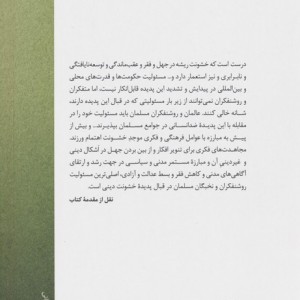 درست است که خشونت ریشه در جهل و فقر و عقب‌ماندگی و توسعه‌نایافتگی
و نابرابری و نیز استعمار دارد و.. مسئولیت حکومت‌ها و قدرت‌های محلی
و بین‌المللی در پیدایش و تشدید این پدیده قابل‌انکار نیست، اما متفکران
و روشنفکران نمی‌توانند از زیر بار مسئولیتی که در قبال این پدیده دارند،
شانه خالی کنند. عالمان و روشنفکران مسلمان باید مسئولیت خود را در
مقابله با این پدیدهٔ ضدانسانی در جوامع مسلمان بپذیرند.. و بیش از
پیش به مبارزه با عوامل فرهنگی و فکری موجد خشونت اهتمام ورزند.
مجاهدت‌های فکری برای تنویر افکار و از بین بردن جهل در اَشکال دینی
و غیردینی آن و مبارزهٔ مستمر مدنی و سیاسی در جهت رشد و ارتقای
آگاهی‌های مدنی و کاهش فقر و بسط عدالت و آزادی، اصلی‌ترین مسئولیت
روشنفکران و نخبگان مسلمان در قبال پدیدهٔ خشونت دینی است.
نقل از مقدمهٔ کتاب